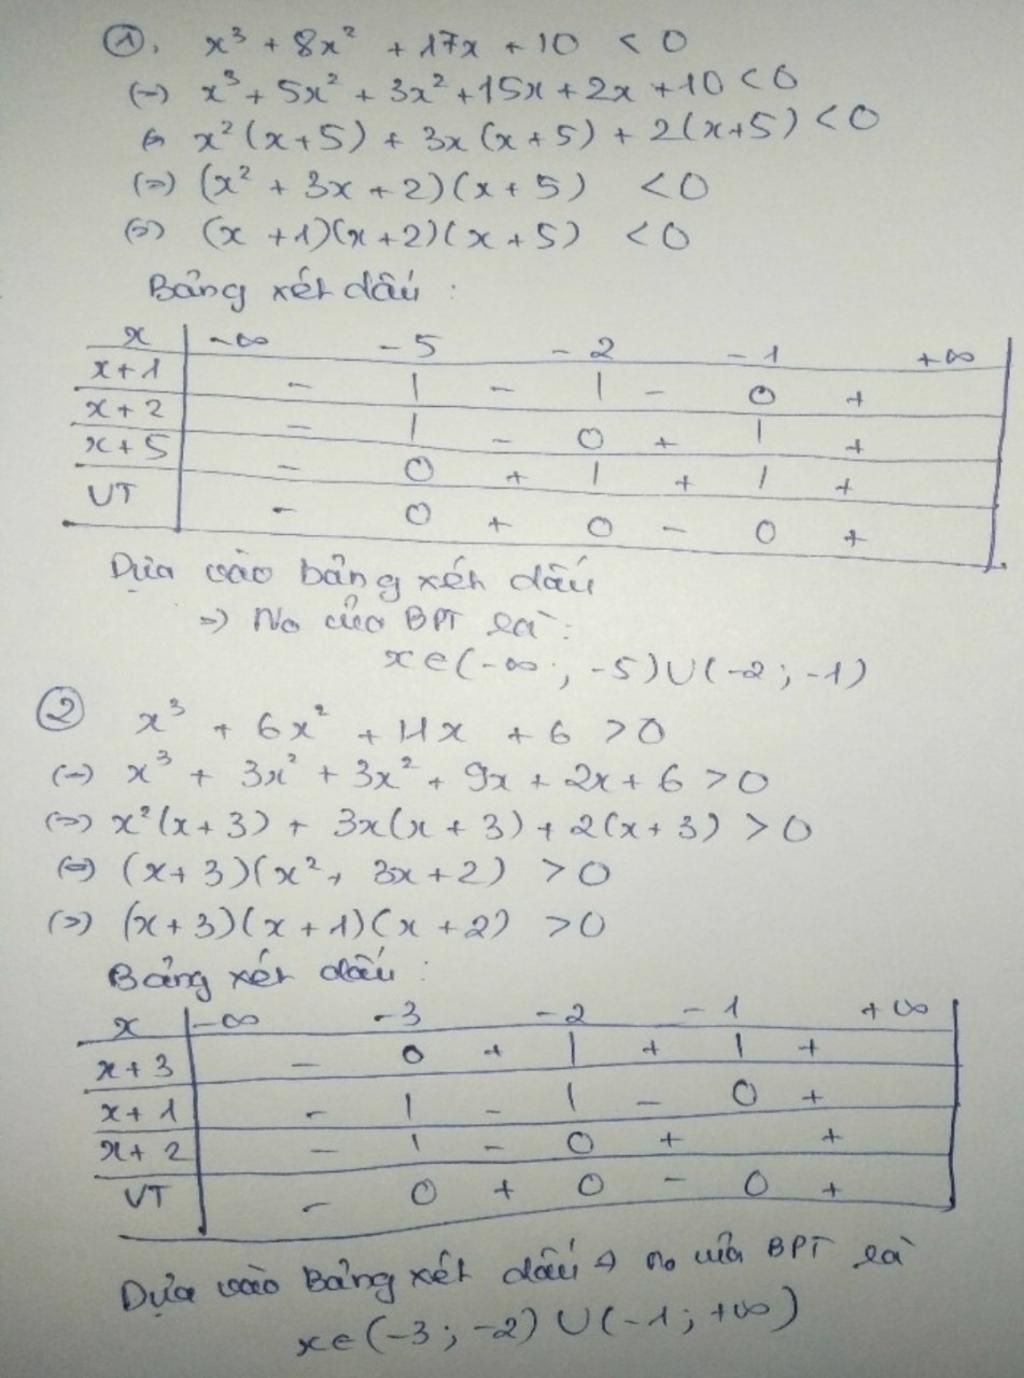 ①. x³ + 8x² + 17x + 10 < 0
(=) x³ + 5x² + 3x² + 15x + 2x + 10 < 0
(=) x²(x+5) + 3x(x+5) + 2(x+5) < 0
(=) (x² + 3x + 2)(x + 5) < 0
(=) (x + 1)(x + 2)(x + 5) < 0
Bảng xét dấu :
x | -∞ -5 -2 -1 +∞
x+1 | - | - | - 0 +
x+2 | - | - 0 + | +
x+5 | - 0 + | + | +
VT | - 0 + 0 - 0 +
Dựa vào bảng xét dấu
=) No của BPT là :
x ∈ (-∞ ; -5) ∪ (-2 ; -1)
② x³ + 6x² + 11x + 6 > 0
(=) x³ + 3x² + 3x² + 9x + 2x + 6 > 0
(=) x²(x + 3) + 3x(x + 3) + 2(x + 3) > 0
(=) (x + 3)(x² + 3x + 2) > 0
(=) (x + 3)(x + 1)(x + 2) > 0
Bảng xét dấu :
x | -∞ -3 -2 -1 +∞
x+3 | - 0 + | + | +
x+1 | - | - | - 0 +
x+2 | - | - 0 + +
VT | - 0 + 0 - 0 +
Dựa vào Bảng xét dấu => No của BPT là
x ∈ (-3 ; -2) ∪ (-1 ; +∞)